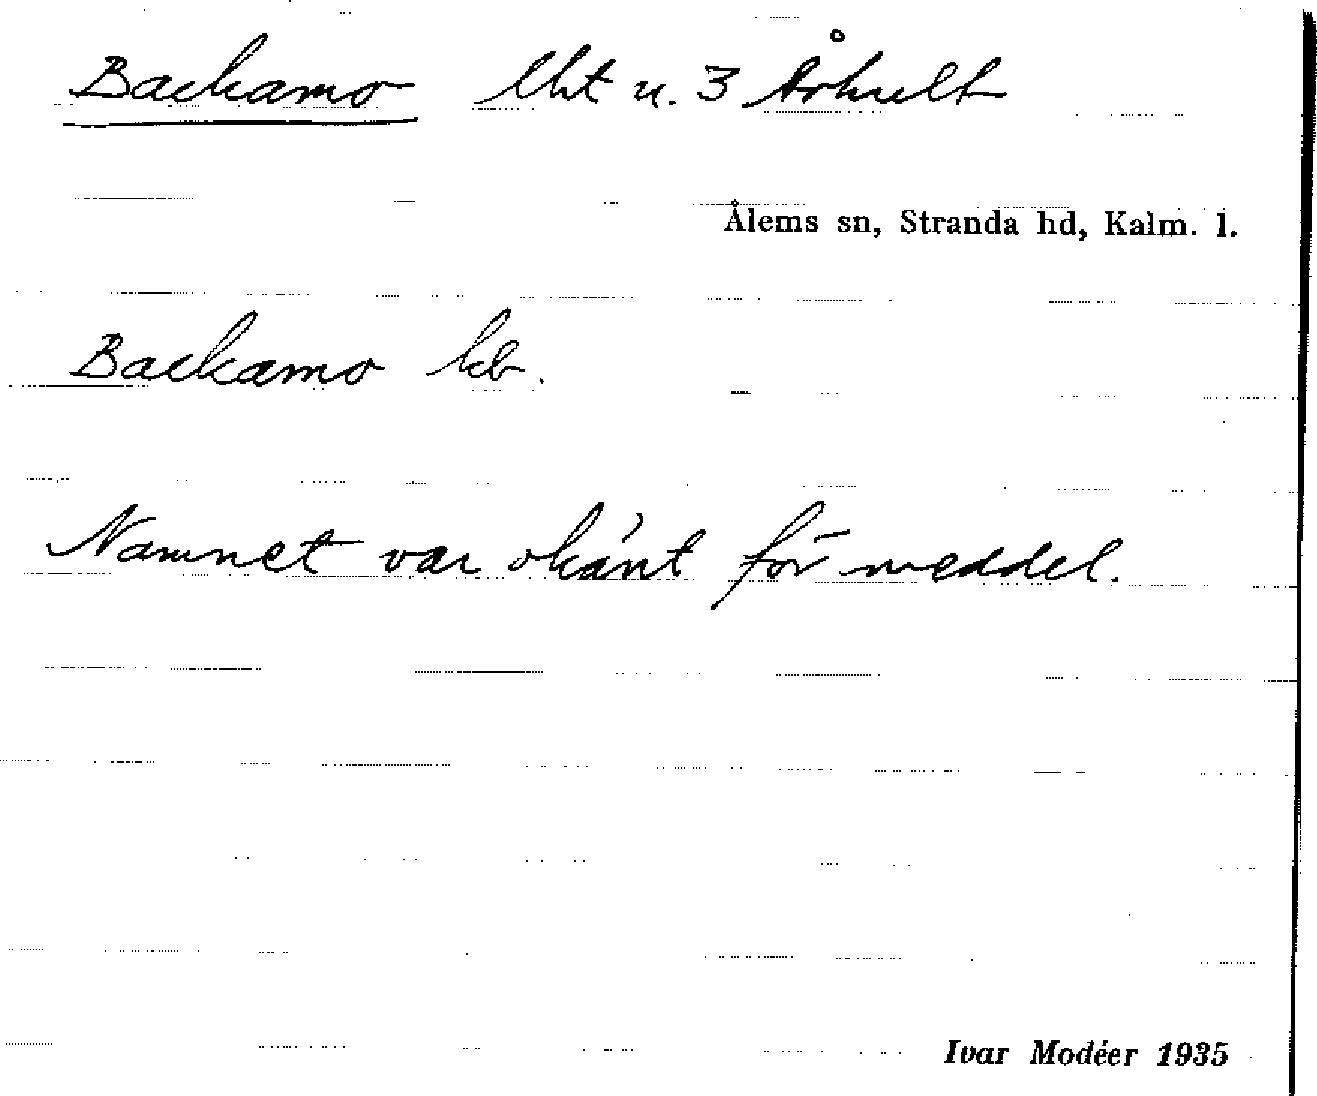 Backamo lht u. 3 Århult
Ålems sn, Stranda hd, Kalm. l.
Backamo kb.
Namnet var okänt för meddel.
Ivar Modéer 1935